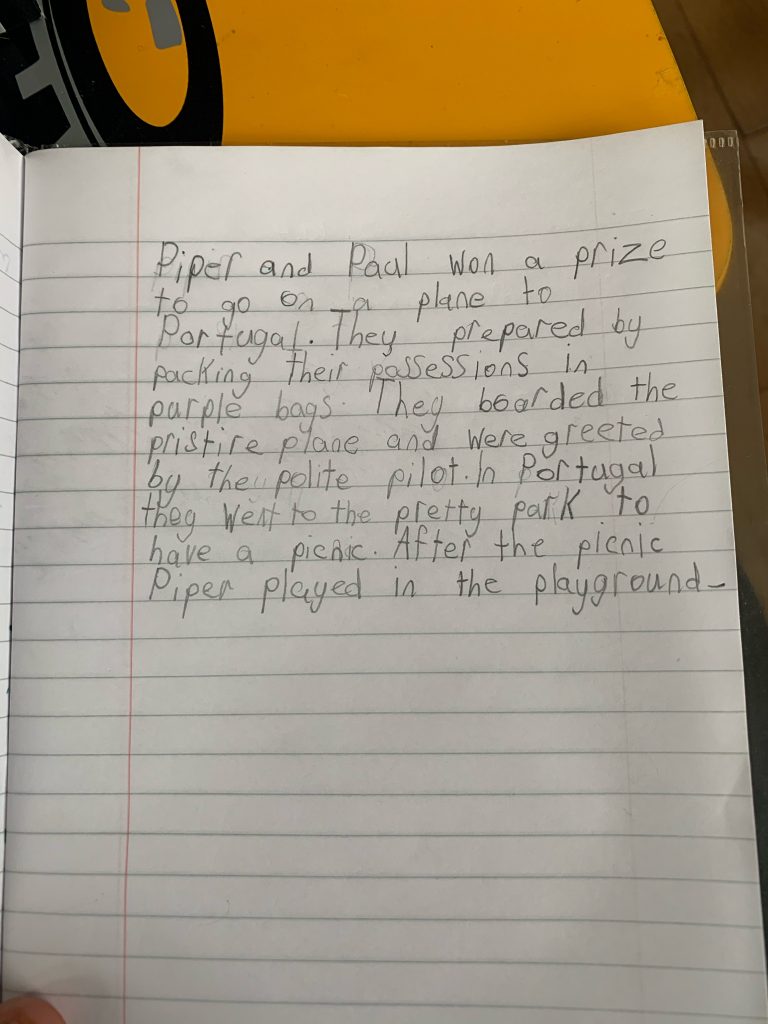 Piper and Paul won a prize
to go on a plane to
Portugal. They prepared by
packing their possessions in
purple bags. They boarded the
pristine plane and were greeted
by the polite pilot. In Portugal
they went to the pretty park to
have a picnic. After the picnic
Piper played in the playground-